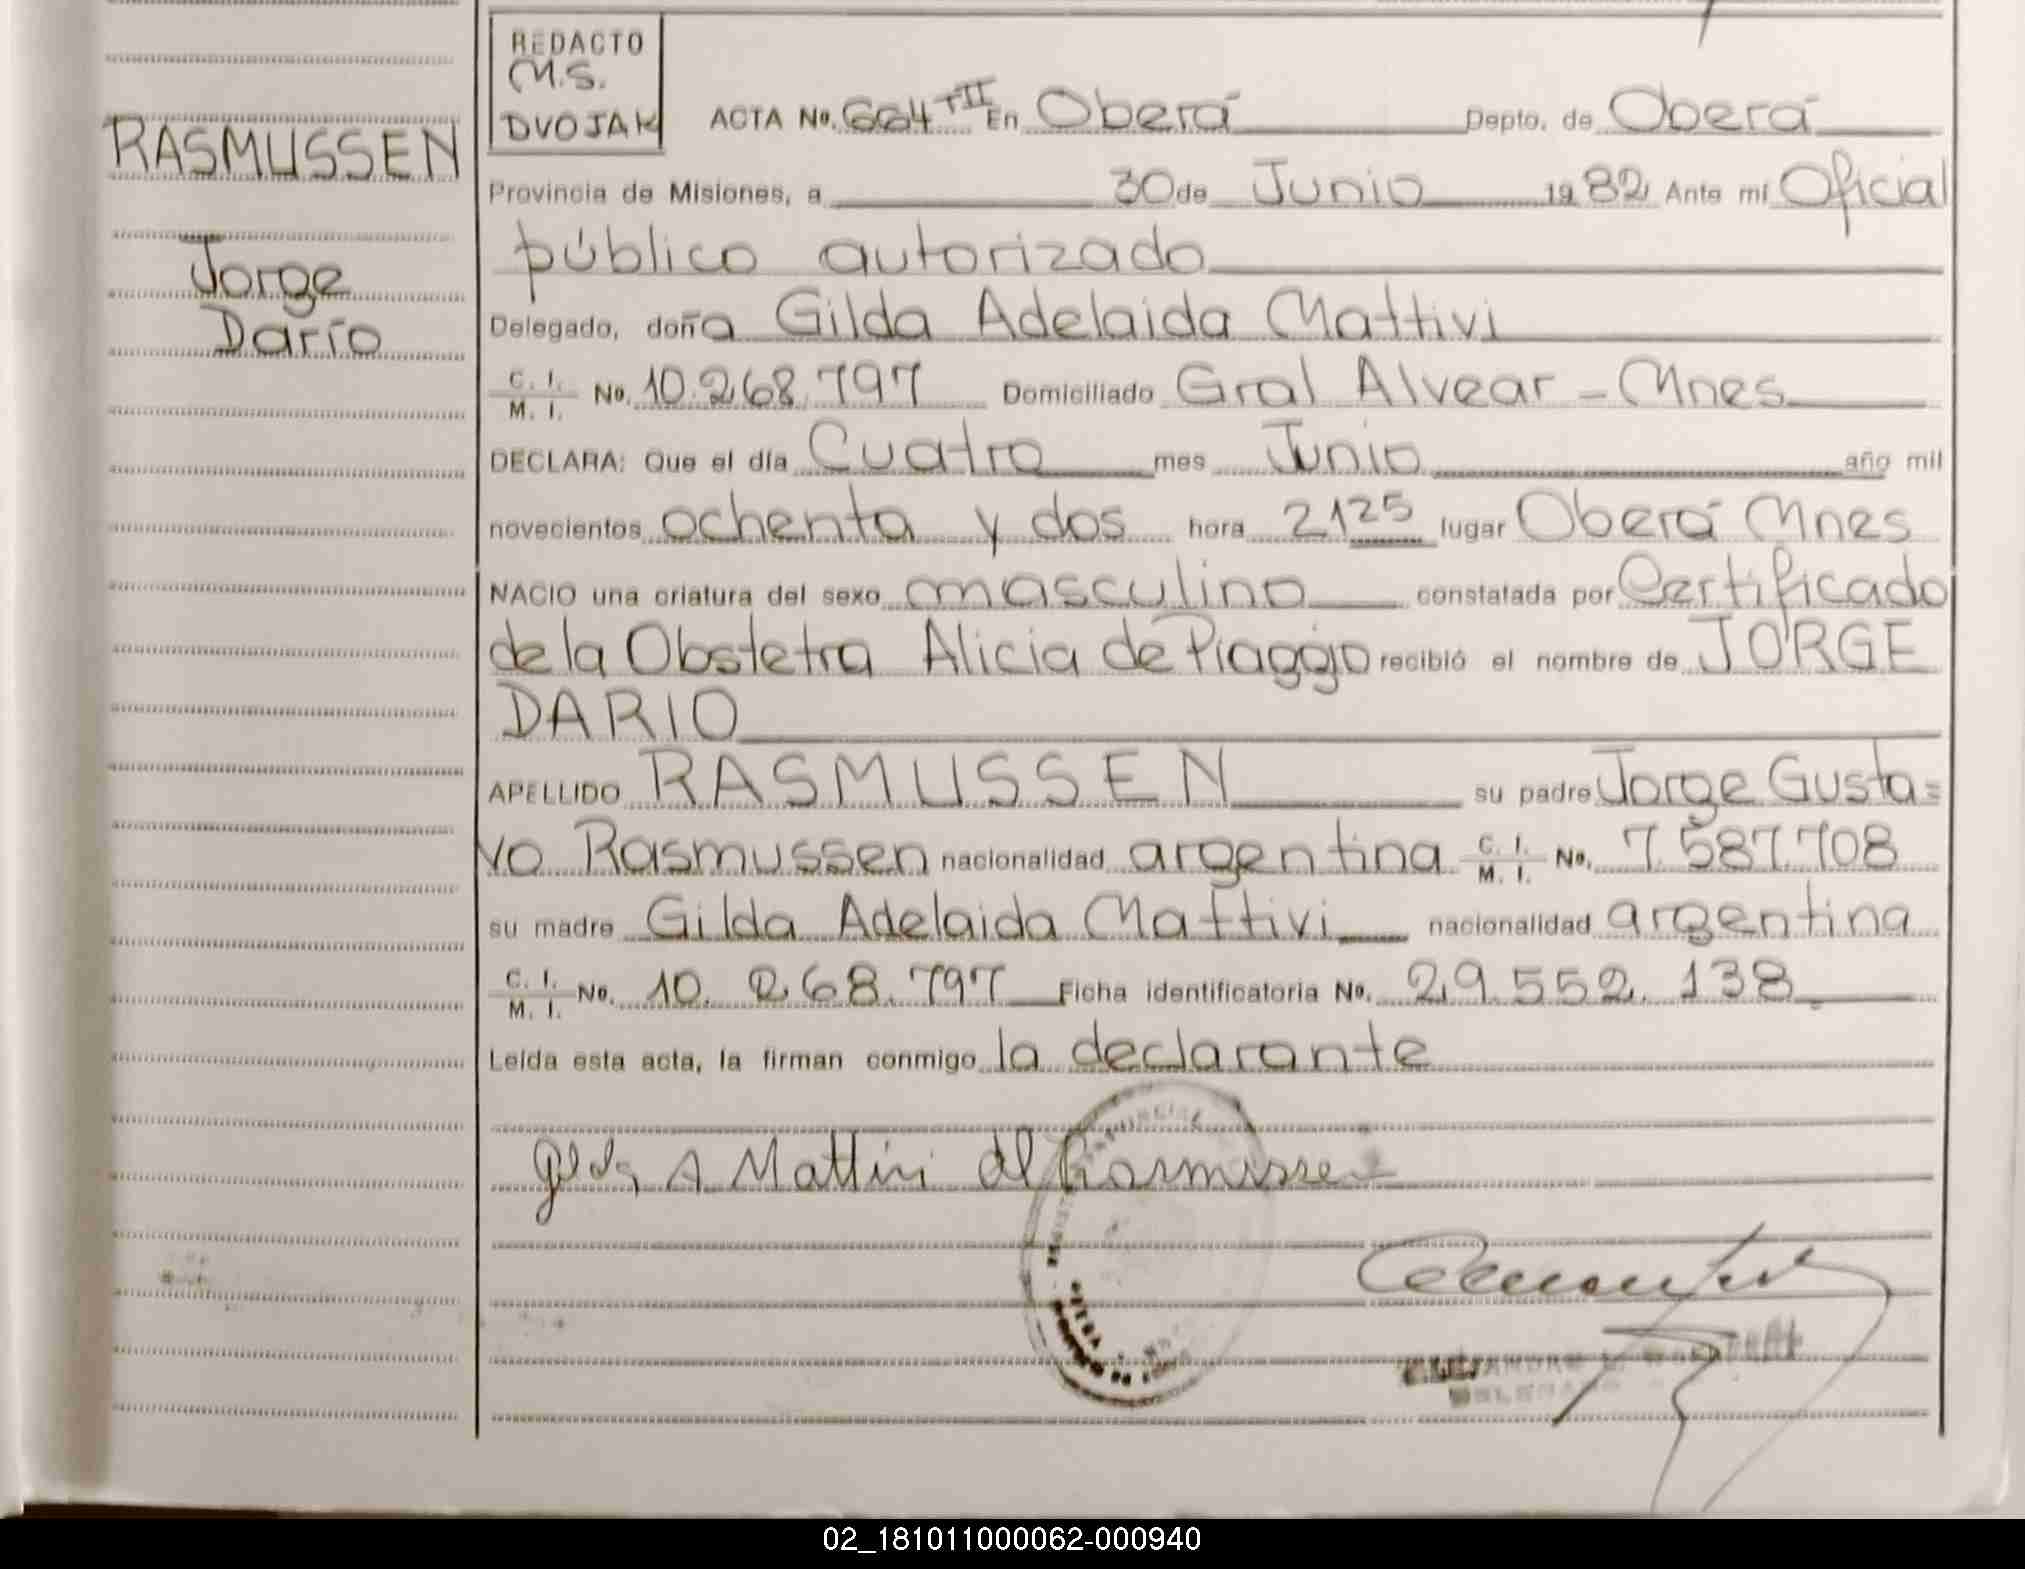 REDACTO
M.S.
DVOJAK
ACTA No. 664 TII En Oberá Depto. de Oberá
RASMUSSEN
Provincia de Misiones, a 30 de Junio 1982 Ante mí Oficial
público autorizado
Jorge
Darío
Delegado, doña Gilda Adelaida Mattivi
C. I.
M. I. No. 10.268.797 Domiciliado Gral Alvear - Mnes
DECLARA: Que el día Cuatro mes Junio año mil
novecientos ochenta y dos hora 21 25 lugar Oberá Mnes
NACIO una criatura del sexo masculino constatada por Certificado
de la Obstetra Alicia de Piaggio recibió el nombre de JORGE
DARIO
APELLIDO RASMUSSEN su padre Jorge Gusta=
vo Rasmussen nacionalidad argentina C. I. M. I. No. 7.587.708
su madre Gilda Adelaida Mattivi nacionalidad argentina
C. I.
M. I. No. 10.268.797 Ficha identificatoria No. 29.552.138
Leída esta acta, la firman conmigo la declarante
Gilda A Mattivi de Rasmussen
02_181011000062-000940